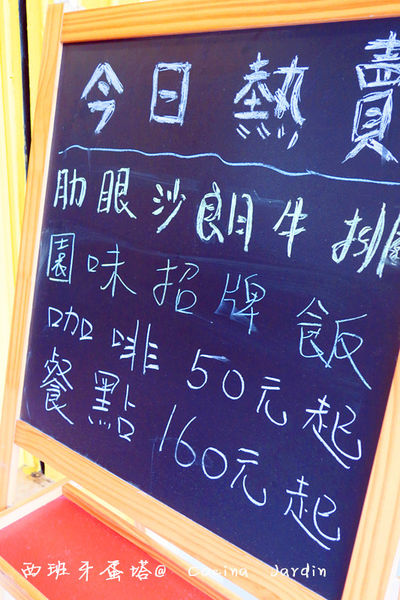 今日熱賣
肋眼沙朗牛排
園味招牌飯
咖啡50元起
餐點160元起
西班牙蛋塔@ Cocina Jardin